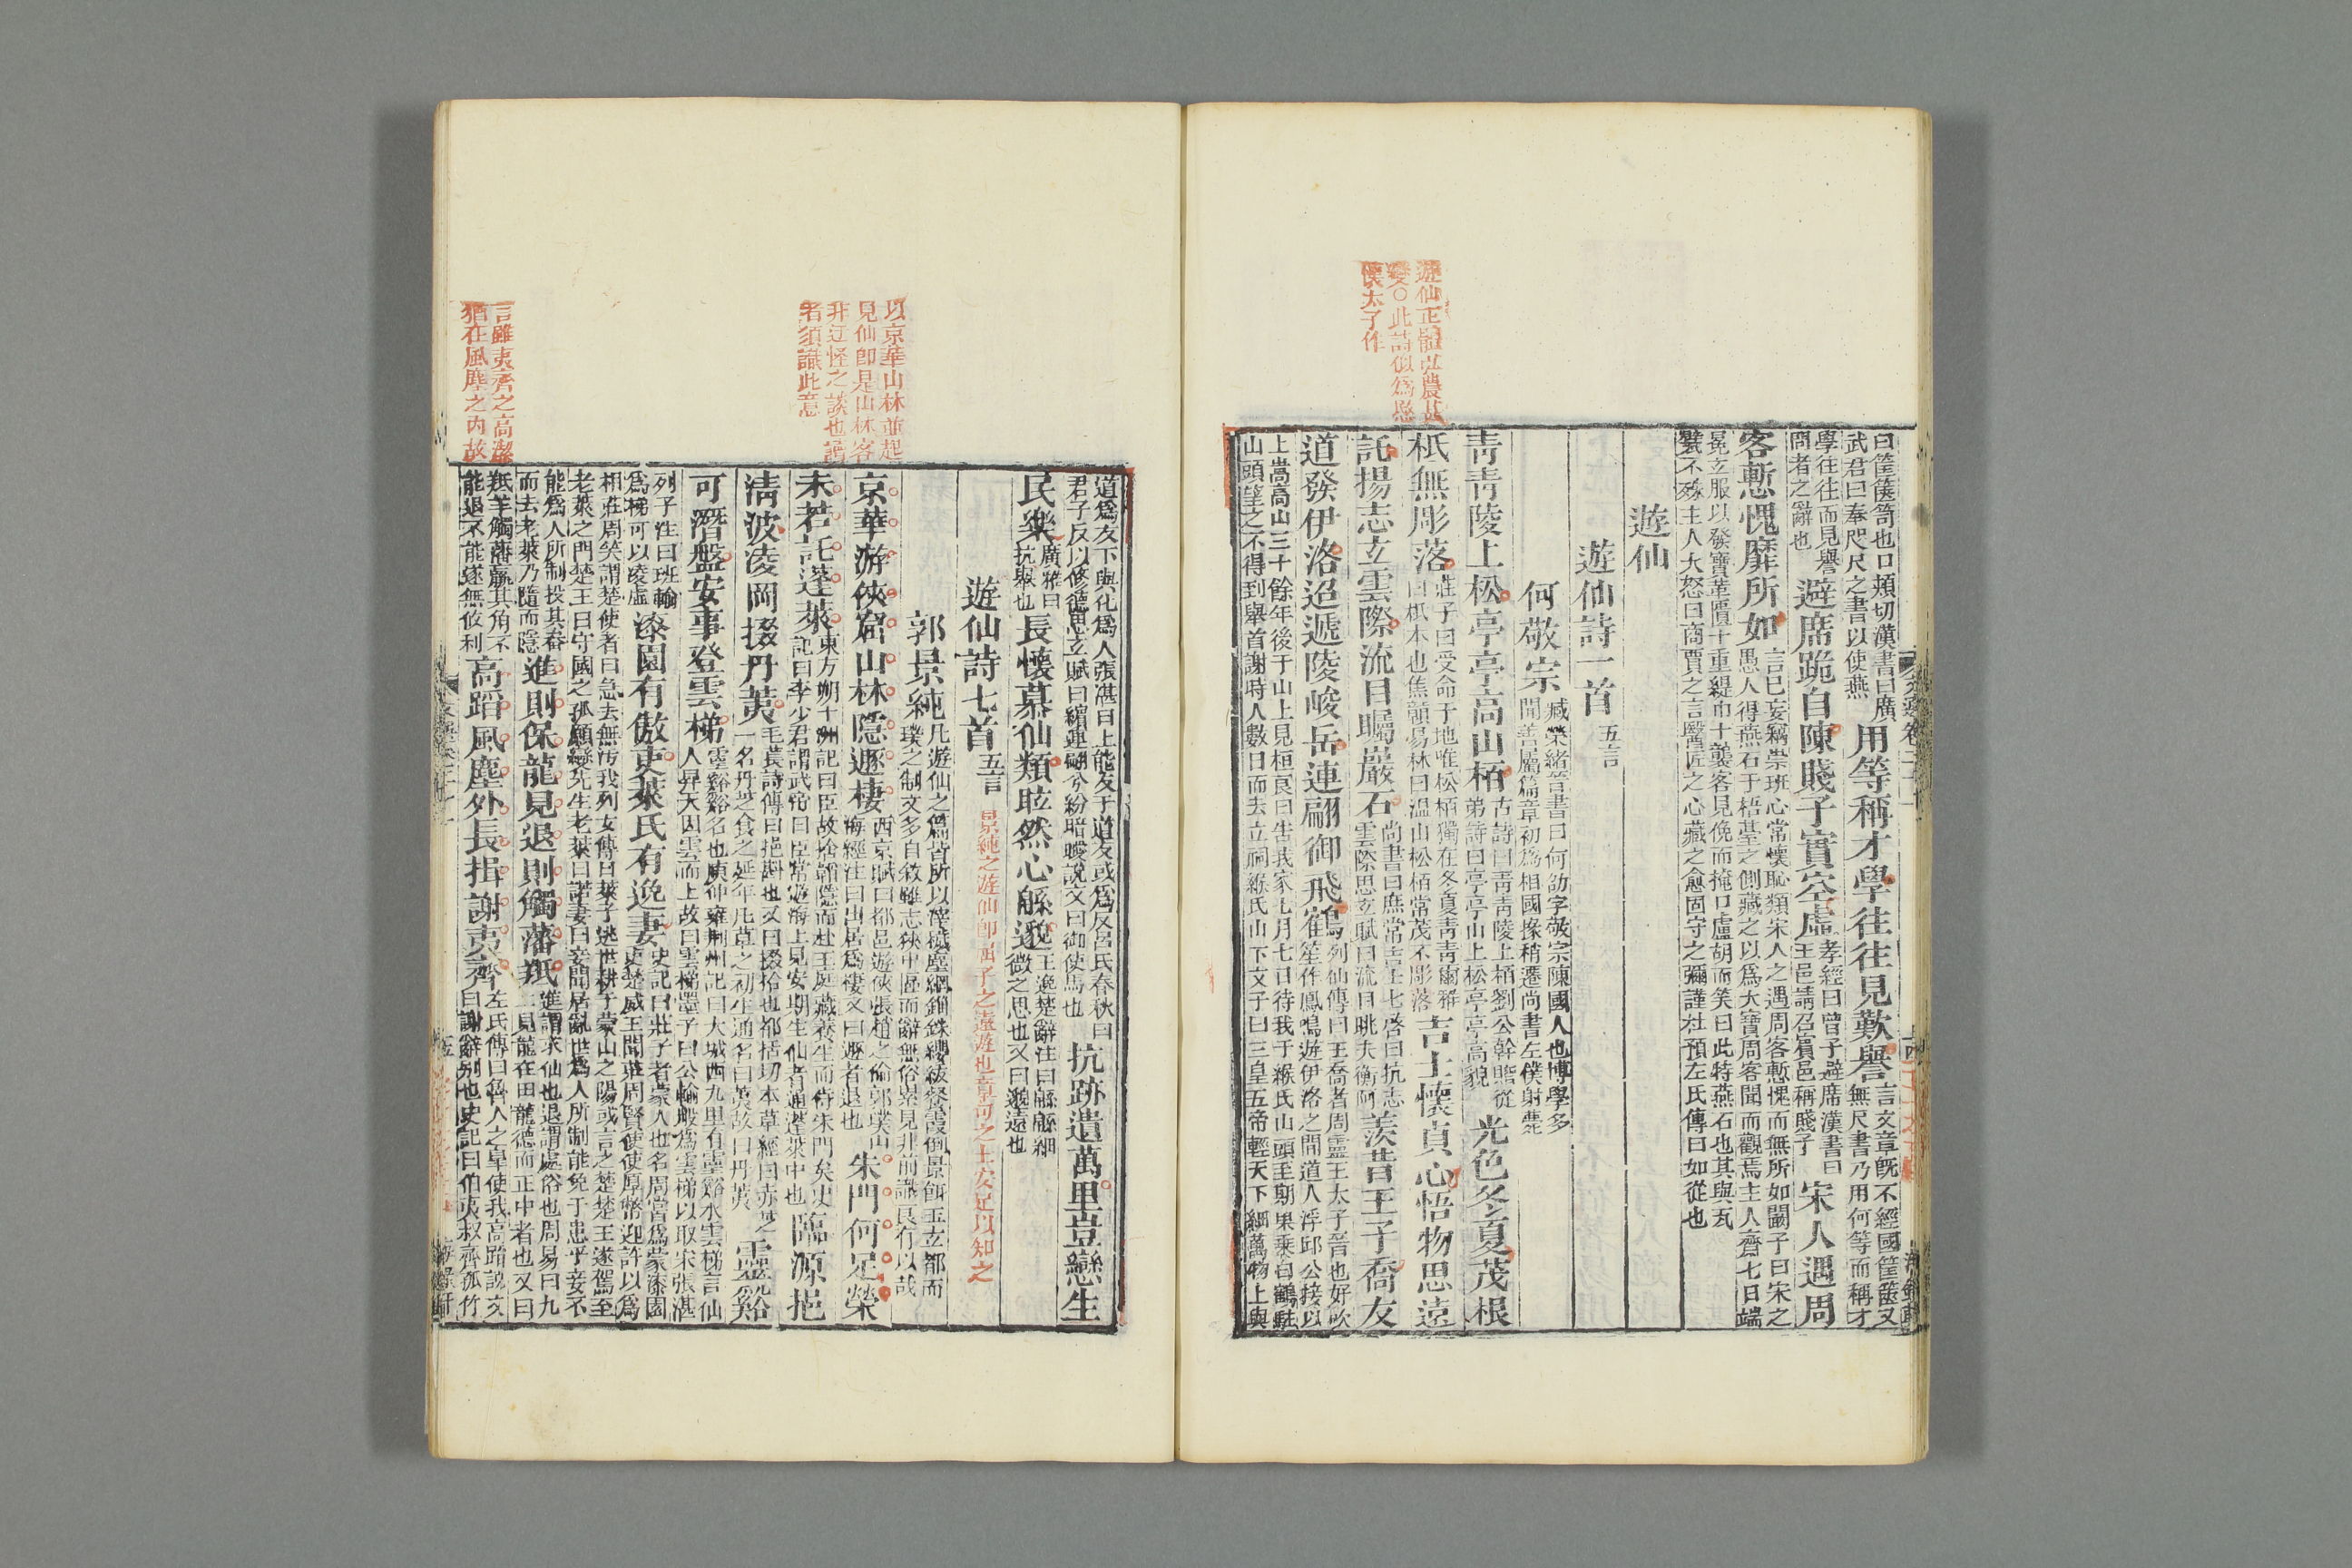 遊仙正體弘農其
變○此詩似爲愍
懷太子作
曰筐篋笥也口頰切漢書曰廣
武君曰奉咫尺之書以使燕
用等稱才學往往見歎譽
言文章旣不經國筐篋又
無尺書乃用何等而稱才
學往往而見譽
問者之辭也
避席跪自陳賤子實空虛
孝經曰曾子避席漢書曰
王邑請召賓邑稱賤子
宋人遇周
客慙愧靡所如
言已妄竊崇班心常懷恥類宋人之遇周客慙愧而無所如闞子曰宋之
愚人得燕石于梧臺之側藏之以爲大寶周客聞而觀焉主人齋七日端
冕玄服以發寶革匱十重緹巾十襲客見俛而掩口盧胡而笑曰此特燕石也其與瓦
甓不殊主人大怒曰商賈之言醫匠之心藏之愈固守之彌謹杜預左氏傳曰如從也
遊仙
遊仙詩一首 五言
何敬宗
臧榮緒晉書曰何劭字敬宗陳國人也博學多
聞善屬篇章初爲相國掾稍遷尚書左僕射薨
靑靑陵上松亭亭高山栢
古詩曰靑靑陵上栢劉公幹贈從
弟詩曰亭亭山上松亭亭高貌
光色冬夏茂根
柢無彫落
莊子曰受命于地唯松栢獨在冬夏靑靑爾雅
曰柢本也焦贛易林曰温山松栢常茂不彫落
吉士懷貞心悟物思遠
託揚志玄雲際流目矚巖石
尚書曰庶常吉士七啓曰抗志
雲際思玄賦曰流目眺夫衡阿
羨昔王子喬友
道發伊洛迢遞陵峻岳連翩御飛鶴
列仙傳曰王喬者周靈王太子晉也好吹
笙作鳳鳴遊伊洛之間道人浮邱公接以
上嵩高山三十餘年後于山上見桓良曰告我家七月七日待我于緱氏山頭至期果乘白鶴駐
山頭望之不得到舉首謝時人數日而去立祠緱氏山下文子曰三皇五帝輕天下細萬物上與
以京華山林並起
見仙卽是山林客
非迂怪之談也讀
者須識此意
言雖夷齊之高潔
猶在風塵之內故
道爲友下與化爲人張湛曰上能友于道友或爲反呂氏春秋曰
君子反以修德思玄賦曰繽連翩兮紛暗曖說文曰御使馬也
抗跡遺萬里豈戀生
民樂
廣雅曰
抗舉也
長懷慕仙類眩然心緜邈
王逸楚辭注曰緜緜細
微之思也又曰邈遠也
遊仙詩七首 五言
景純之遊仙卽屈子之遠遊也章句之士安足以知之
郭景純
凡遊仙之篇皆所以滓穢塵網錙銖纓紱飡霞倒景餌玉玄都而
璞之制文多自敘雖志狹中區而辭無俗累見非前識良有以哉
京華游俠窟山林隱遯棲
西京賦曰都邑遊俠張趙之倫郭璞山
海經注曰山居爲棲又曰遯者退也
朱門何足榮
未若託蓬萊
東方朔十洲記曰臣故捨韜隱而赴王庭藏養生而侍朱門矣史
記曰李少君謂武帝曰臣常遊海上見安期生仙者通蓬萊中也
臨源挹
淸波凌岡掇丹荑
毛萇詩傳曰挹㪺也又曰掇拾也都括切本草經曰赤芝
一名丹芝食之延年凡草之初生通名曰荑故曰丹荑
靈谿
可潛盤安事登雲梯
靈谿谿名也庾仲雍荆州記曰大城西九里有靈谿水雲梯言仙
人昇天因雲而上故曰雲梯墨子曰公輸般爲雲梯以取宋張湛
列子注曰班輸
爲梯可以凌虛
漆園有傲吏萊氏有逸妻
史記曰莊子者蒙人也名周嘗爲蒙漆園
吏楚威王聞莊周賢使使厚幣迎許以爲
相莊周笑謂楚使者曰亟去無汚我列女傳曰萊子逃世耕于蒙山之陽或言之楚楚王遂駕至
老萊之門楚王曰守國之孤願變先生老萊曰諾妻曰妾聞居亂世爲人所制能免于患乎妾不
能爲人所制投其畚
而去老萊乃隨而隱
進則保龍見退則觸藩羝
進謂求仙也退謂處俗也周易曰九
二見龍在田龍德而正中者也又曰
羝羊觸藩羸其角不
能退不能遂無攸利
高蹈風塵外長揖謝夷齊
左氏傳曰魯人之臯使我高蹈說文
曰謝辭别也史記曰伯夷叔齊孤竹